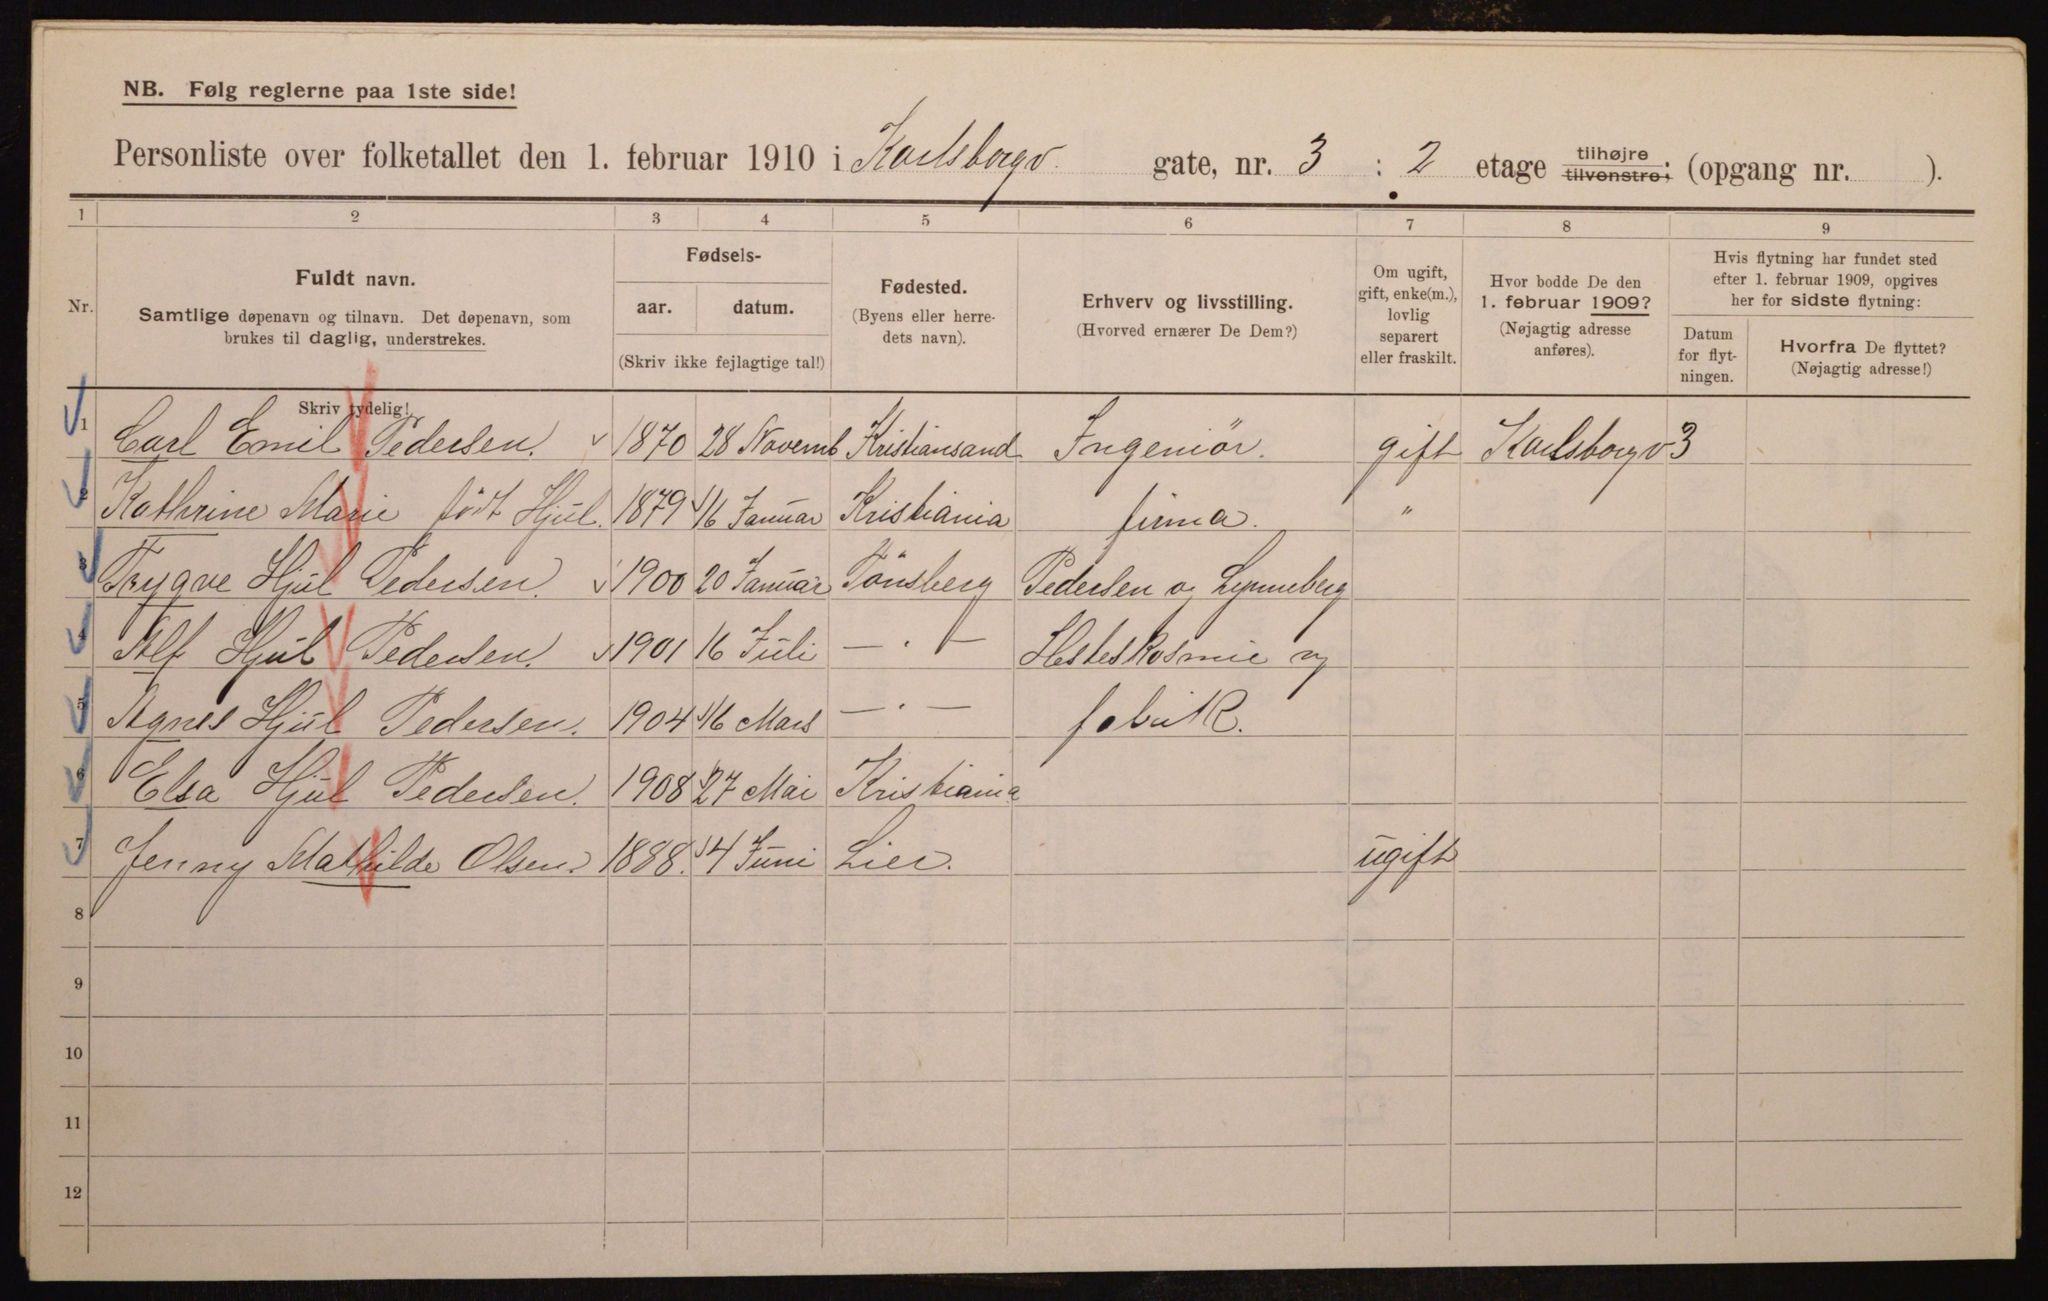 NB. Følg reglerne paa 1ste side!
Personliste over folketallet den 1. februar 1910 i Karlsborgv. gate, nr. 3 : 2 etage tilhøjre tilvenstre; (opgang nr. ).
1 2 3 4 5 6 7 8 9
Nr.
Fuldt navn.
Samtlige døpenavn og tilnavn. Det døpenavn, som
brukes til daglig, understrekes.
Skriv tydelig!
Fødsels-
aar. datum.
(Skriv ikke fejlagtige tal!)
Fødested.
(Byens eller herre-
dets navn).
Erhverv og livsstilling.
(Hvorved ernærer De Dem?)
Om ugift,
gift, enke(m.),
lovlig
separert
eller fraskilt.
Hvor bodde De den
1. februar 1909?
(Nøjagtig adresse
anføres).
Hvis flytning har fundet sted
efter 1. februar 1909, opgives
her for sidste flytning:
Datum
for flyt-
ningen.
Hvorfra De flyttet?
(Nøjagtig adresse!)
1 Carl Emil Pedersen. 1870 28 Novemb Kristiansand Ingeniör. gift Karlsborgv 3
2 Kathrine Marie født Hjul. 1879 16 Januar Kristiania firma. "
3 Trygve Hjul Pedersen. 1900 20 Januar Tönsberg Pedersen og Lynneberg
4 Alf Hjul Pedersen. 1901 16 Juli — " — Hesteskosmie og
5 Agnes Hjul Pedersen. 1904 16 Mars — " — fabrik.
6 Elsa Hjul Pedersen. 1908 27 Mai Kristiania
7 Jenny Mathilde Olsen. 1888. 4 Juni Lier. ugift
8
9
10
11
12